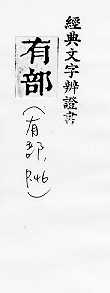 經典文字辨證書
有部
(有部,
P.46)